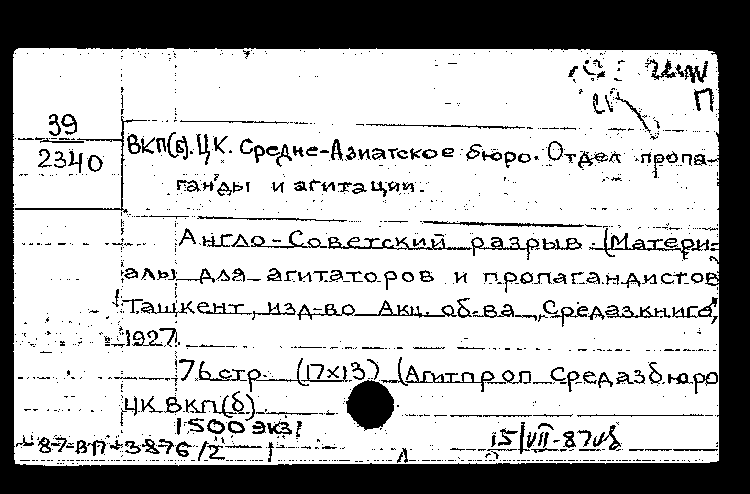 П
39
2340
ВКП(б). ЦК. Средне-Азиатское бюро. Отдел пропа-
ганды и агитации.
Англо-Советский разрыв. (Матери-
алы для агитаторов и пропагандистов
Ташкент, изд-во Акц. об-ва „Средазкнига",
1927.
76 стр. (17x13) (Агитпроп Средазбюро
ЦК ВКП(б)
1500 экз
87-ВП-3876/2
15/VII-87